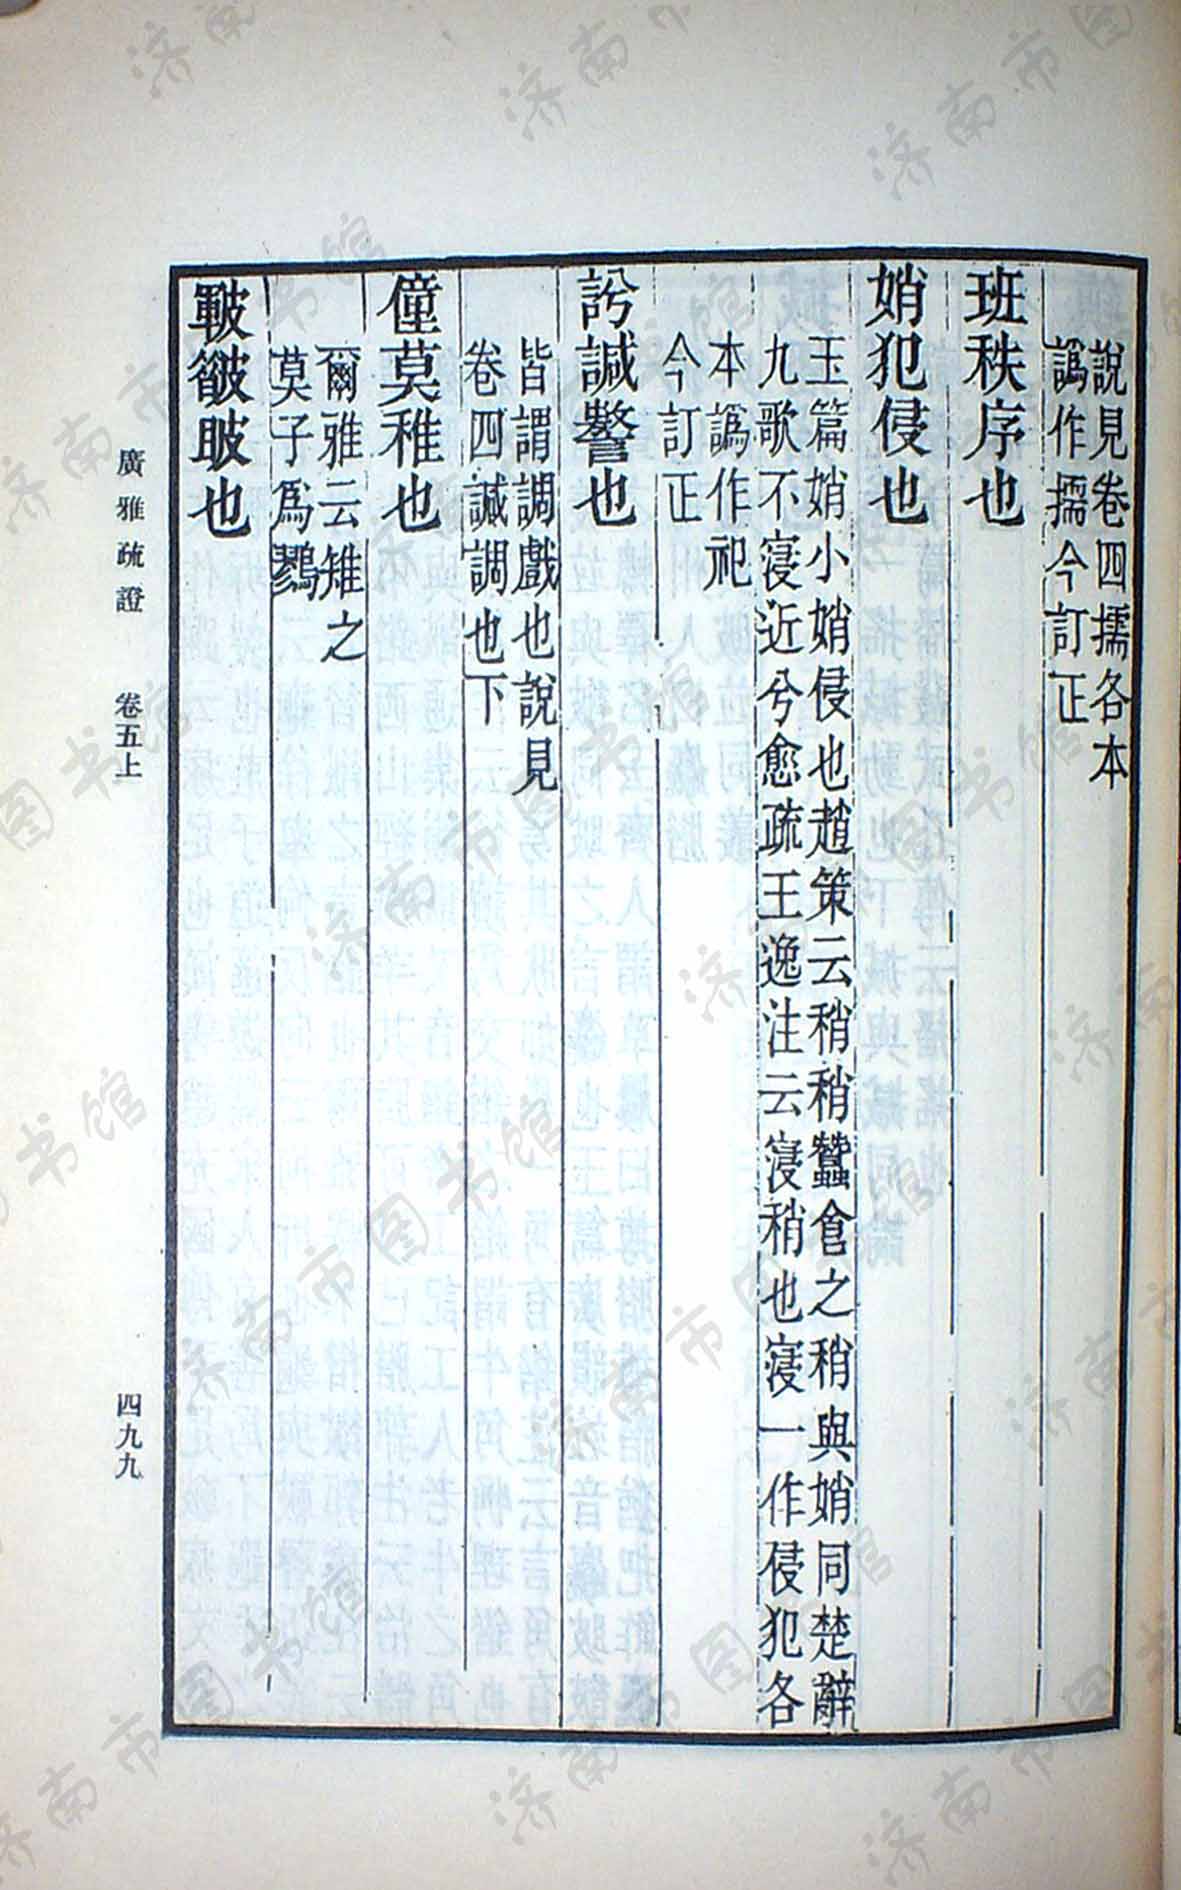 說見卷四擩各本
譌作擩今訂正
班秩序也
娋犯侵也
玉篇娋小娋侵也趙策云稍稍蠶食之稍與娋同楚辭
九歌不寖近兮愈疏王逸注云寖稍也寖一作侵犯各
本譌作祀
今訂正
訡諴謷也
皆謂調戲也說見
卷四諴調也下
僮莫稚也
爾雅云雉之
莫子爲鷚
皸皴皵也
廣雅疏證 卷五上
四九九
济南市图书馆